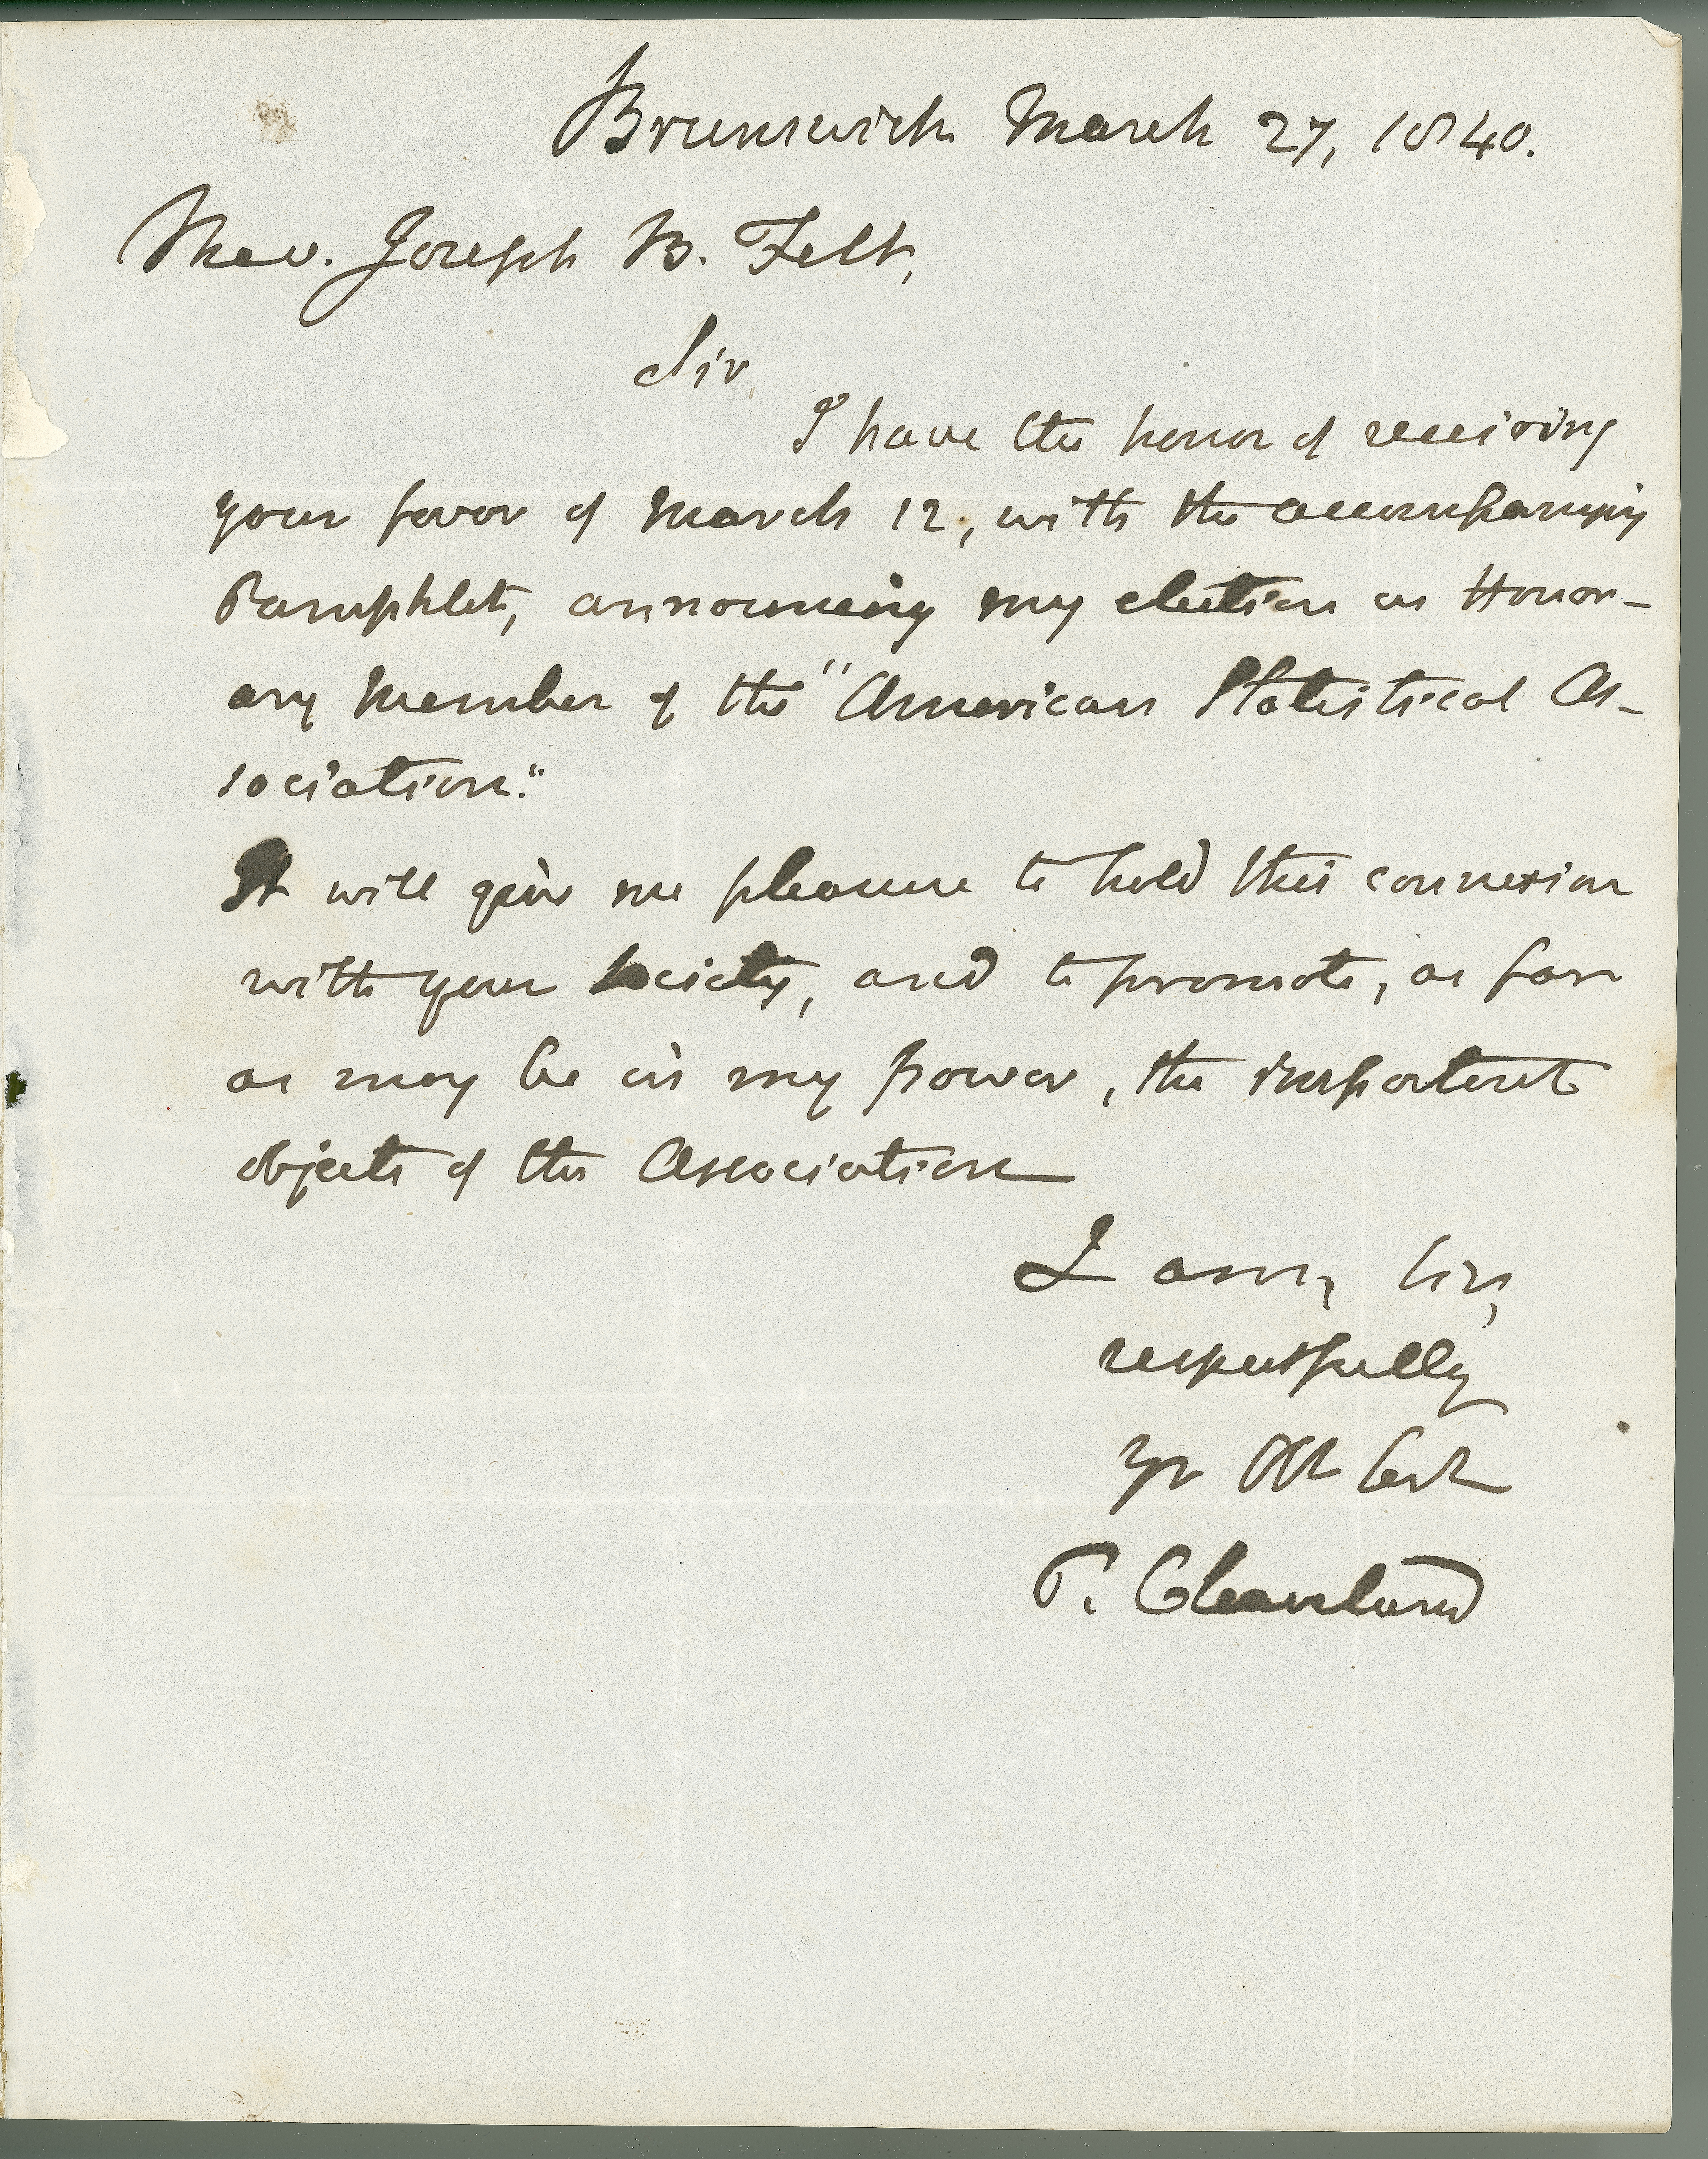 Brunswick March 27, 1840.
Rev. Joseph B. Felt,
Sir,
I have the honor of receiving
your favor of March 12, with the accompanying
Pamphlet, announcing my election as Honor-
ary Member of the "American Statistical As-
sociation."
It will give me pleasure to hold this connexion
with your Society, and to promote, as far
as may be in my power, the important
objects of the Association
I am, Sir,
respectfully
yr Obt Sert
P. Cleaveland